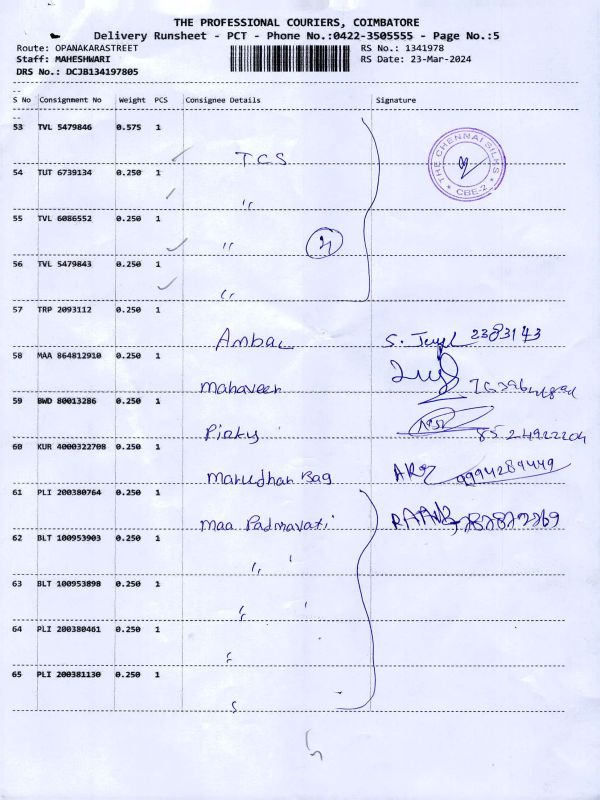 THE PROFESSIONAL COURIERS, COIMBATORE
Delivery Runsheet - PCT - Phone No.:0422-3505555 - Page No.:5
Route: OPANAKARASTREET RS No.: 1341978
Staff: MAHESHWARI RS Date: 23-Mar-2024
DRS No.: DCJB134197805
S No Consignment No Weight PCS Consignee Details Signature
53 TVL 5479846 0.575 1
TCS
THE CHENNAI SILKS
CBE-2
54 TUT 6739134 0.250 1
"
55 TVL 6086552 0.250 1
"
56 TVL 5479843 0.250 1
"
57 TRP 2093112 0.250 1
Ambal S. 2383143
58 MAA 864812910 0.250 1
Mahaveer
59 BWD 80013286 0.250 1
Pinky 8524922204
60 KUR 4000322708 0.250 1
Marudhar Bag 9994289449
61 PLI 200380764 0.250 1
Maa Padmavati
62 BLT 100953903 0.250 1
"
63 BLT 100953898 0.250 1
"
64 PLI 200380461 0.250 1
"
65 PLI 200381130 0.250 1
"